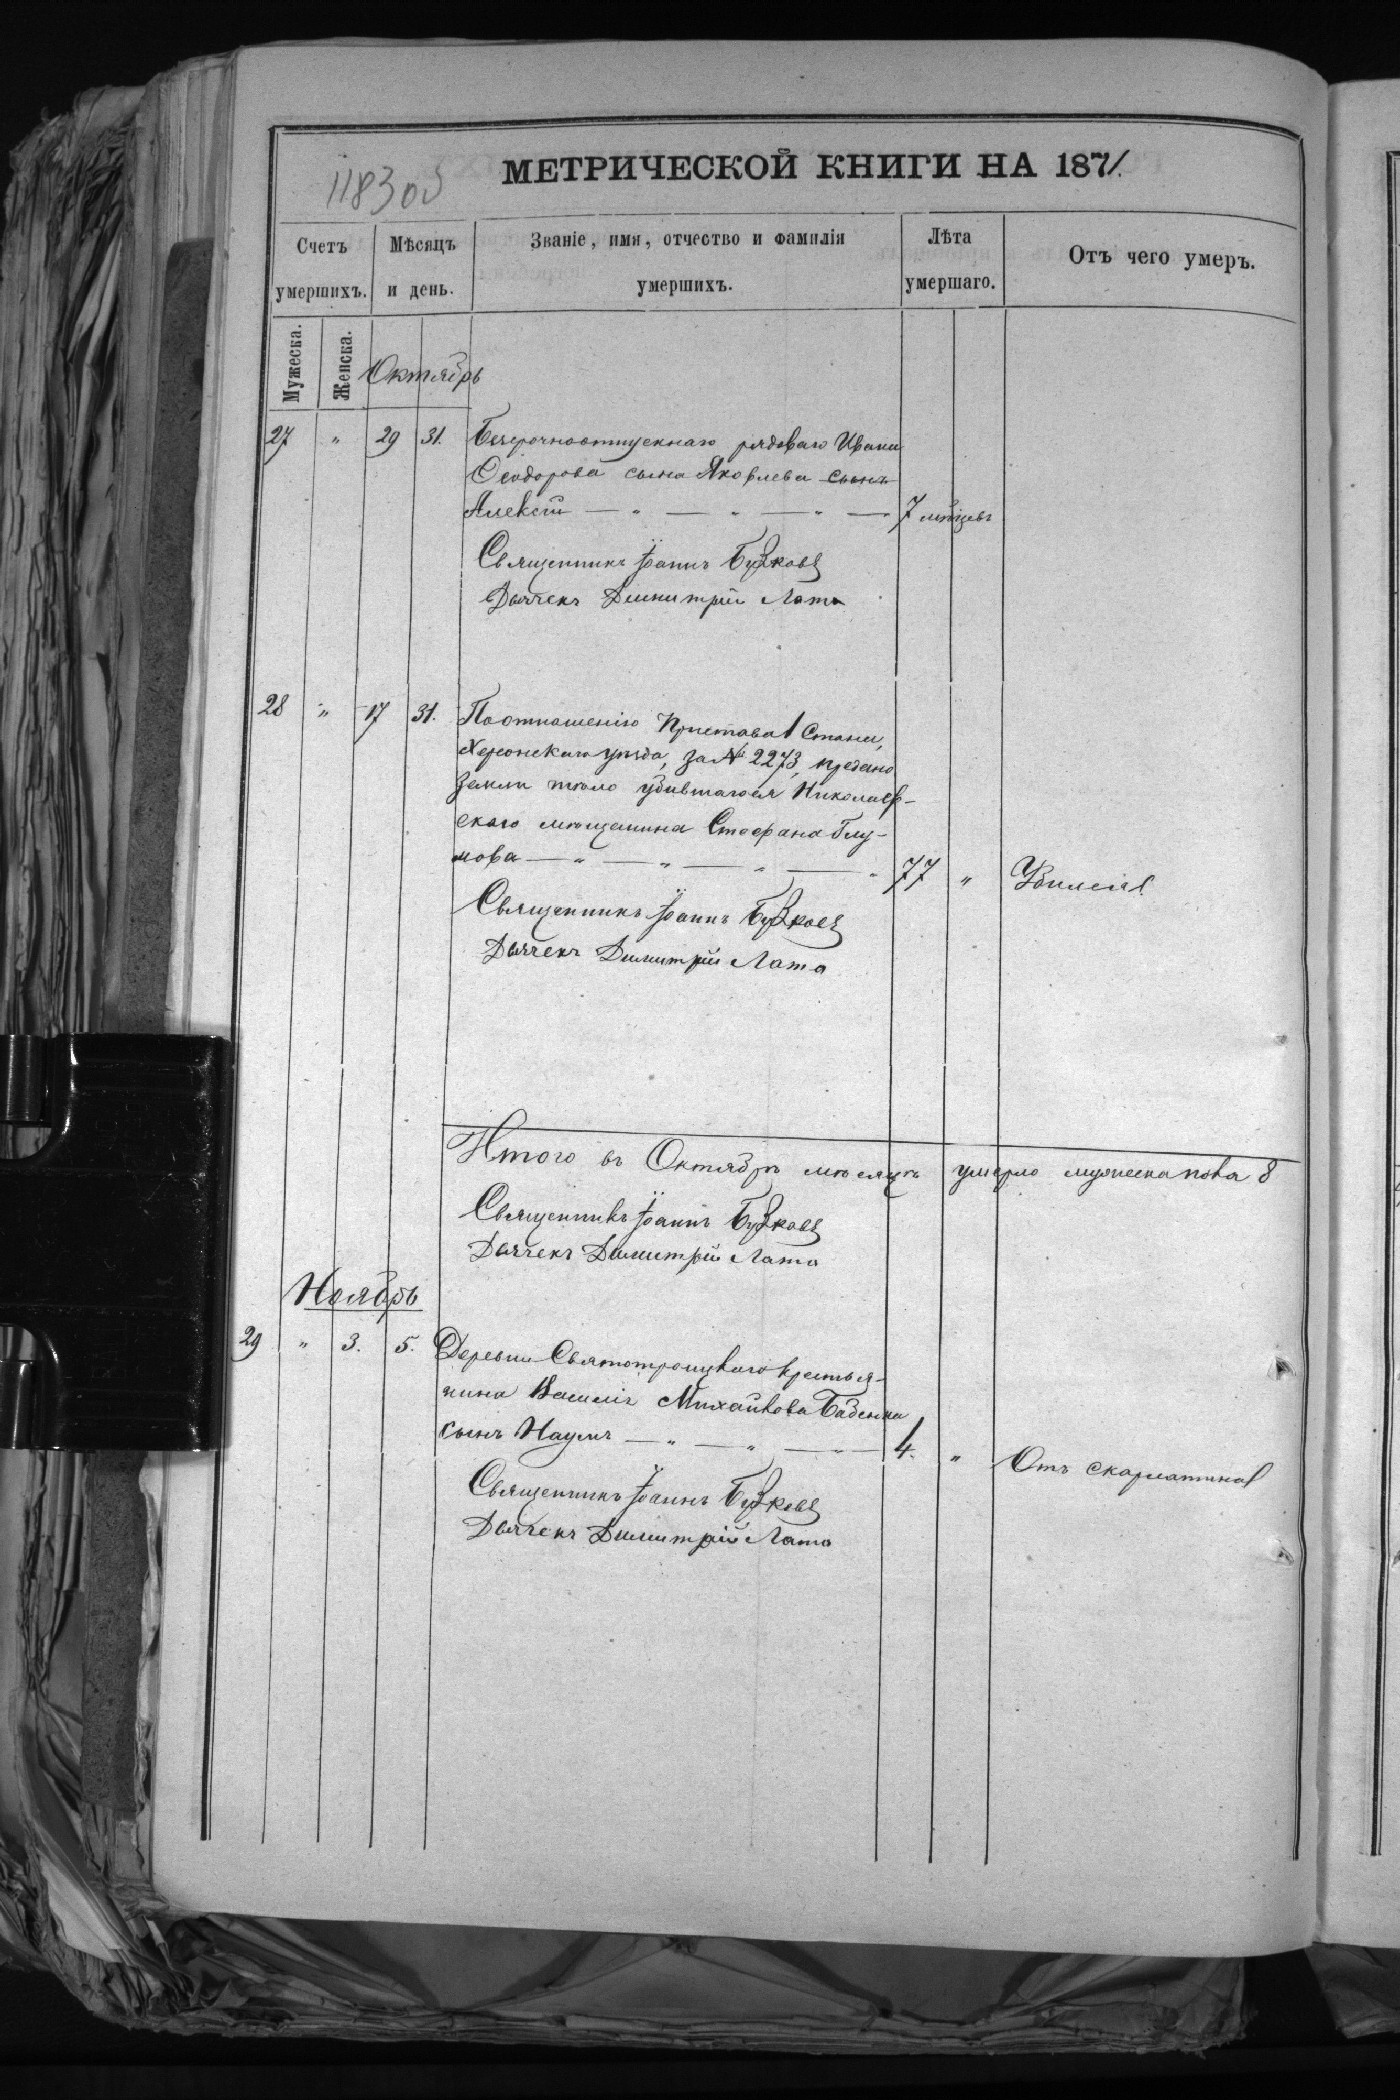 118300
МЕТРИЧЕСКОЙ КНИГИ НА 1871.
Счетъ умершихъ.
Мѣсяцъ и день.
Званіе, имя, отчество и фамилія умершихъ.
Лѣта умершаго.
Отъ чего умеръ.
Мужеска.
Женска.
Октябрь
27 " 29 31. Безсрочноотпускнаго рядоваго Ивана
Ѳеодорова сына Яковлева сынъ
Алексѣй — " — " — " — 7 мѣсяцевъ
Священникъ Іоаннъ
Дьячекъ Димитрій Лата
28 " 17 31. По отношенію Пристава 1 Стана,
Херсонскаго уѣзда, за № 2273, предано
земли тѣло убившагося Николаев-
скаго мѣщанина Стефана
мова — " — " — " — " 77 "
Священникъ Іоаннъ
Дьячекъ Димитрій Лата
Итого въ Октябрѣ мѣсяцѣ умерло мужеска пола 8
Священникъ Іоаннъ
Дьячекъ Димитрій Лата
Ноябрь
29 " 3. 5. Деревни Святотроицкаго крестья-
нина Василія Михайлова
сынъ Наумъ — " — " — " — 4. " Отъ скарлатины
Священникъ Іоаннъ
Дьячекъ Димитрій Лата